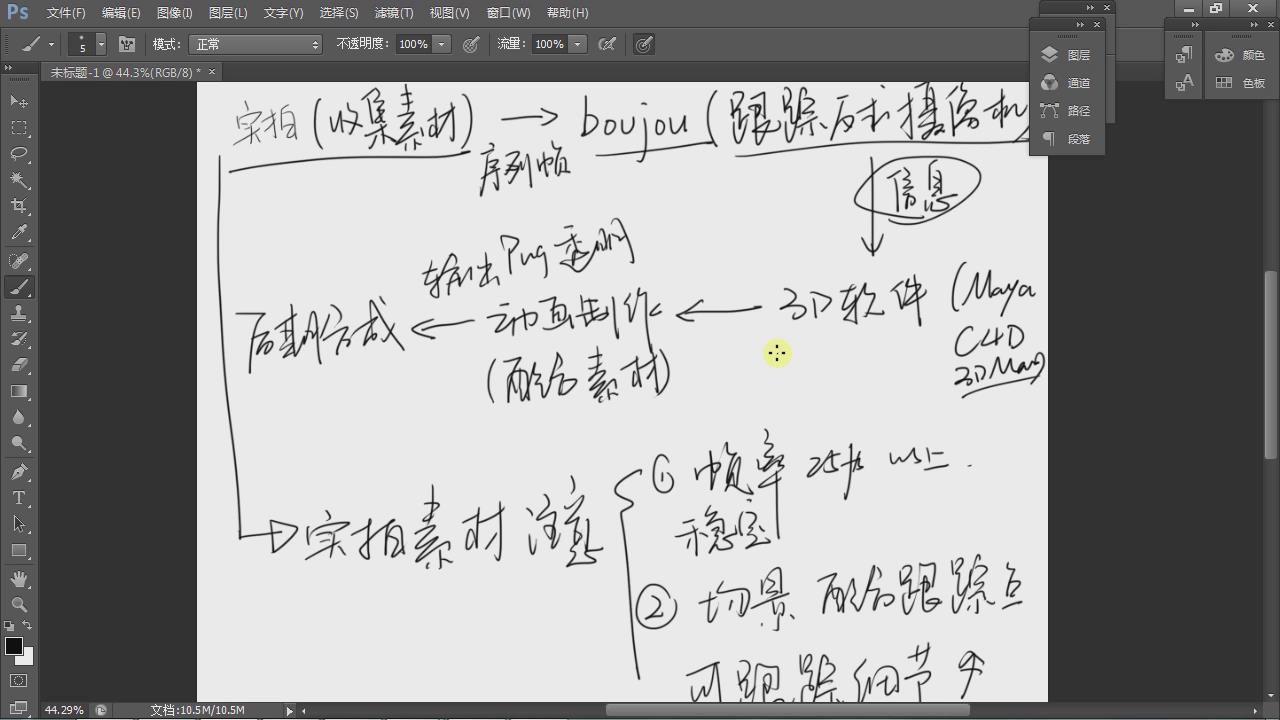 Ps 文件(F) 编辑(E) 图像(I) 图层(L) 文字(Y) 选择(S) 滤镜(T) 视图(V) 窗口(W) 帮助(H)
5 模式: 正常 不透明度: 100% 流量: 100%
未标题-1 @ 44.3%(RGB/8) * ×
图层
通道
路径
段落
颜色
色板
实拍 (收集素材) → boujou (跟踪反求摄像机
序列帧
信息
输出Png透明
后期合成 ← 动画制作 ← 3D软件 (Maya
C4D
(配合素材)
3DMax)
→ 实拍素材注意
① 帧率 25fs 以上.
稳定
② 场景 配合跟踪点
可跟踪细节
44.29% 文档:10.5M/10.5M